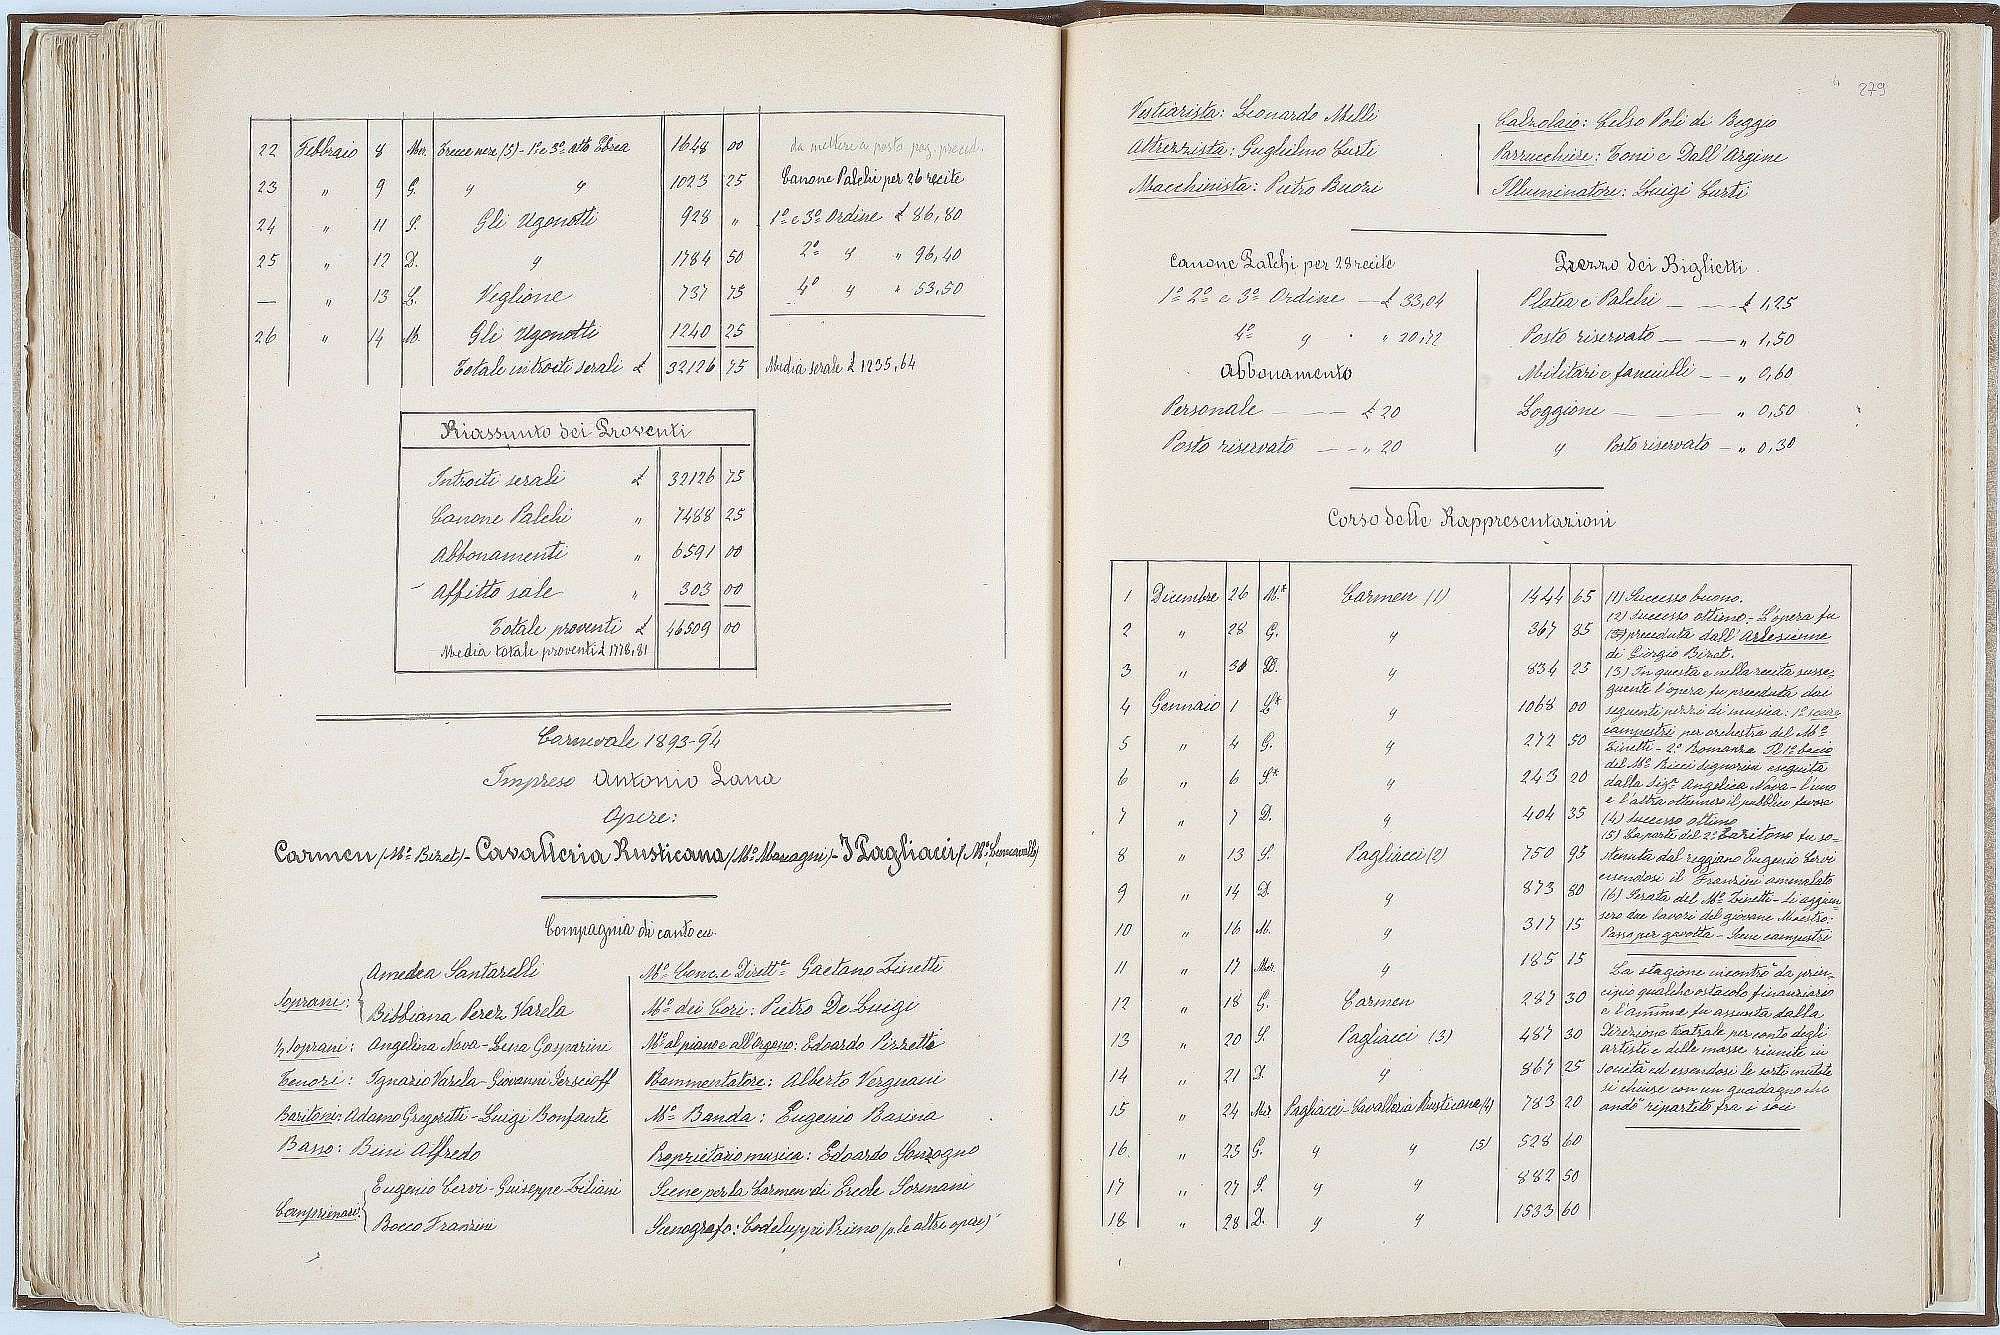 22 Febbraio 8 Mer. Trecce nere (5) - 1º e 3º atto Ebrea 1648 00 da mettere a posto pag. preced.
23 " 9 G. " " 1023 25 Canone Palchi per 26 recite
24 " 11 S. Gli Ugonotti 928 " 1º e 3º Ordine £ 86,80
25 " 12 D. " 1784 50 2º " " 96,40
— " 13 L. Veglione 737 75 4º " " 53,50
26 " 14 M. Gli Ugonotti 1240 25
Totale introiti serali £ 32126 75 Media serale £ 1235,64
Riassunto dei Proventi
Introiti serali £ 32126 75
Canone Palchi " 7488 25
Abbonamenti " 6591 00
Affitto sale " 303 00
Totale proventi £ 46509 00
Media totale proventi £ 1778,81
Carnevale 1893-94
Impresa Antonio Lana
Opere:
Carmen (Mº Bizet) - Cavalleria Rusticana (Mº Mascagni) - I Pagliacci (Mº Leoncavallo)
Compagnia di canto ecc.
Soprani: Amedea Santarelli
Bibbiana Perez Varela
½ Soprani: Angelina Nava - Lena Gasparini
Tenori: Ignazio Varela - Giovanni Perscioff
Baritoni: Adamo Gregoretti - Luigi Bonfante
Basso: Bini Alfredo
Comprimari: Eugenio Cervi - Guiseppe Ziliani
Rocco Franzini
Mº Conc. e Dirett.e Gaetano Zinetti
Mº dei Cori: Pietro De Luigi
Mº al piano e all'Organo: Edoardo Pizzetti
Rammentatore: Alberto Vergnani
Mº Banda: Eugenio Rasina
Proprietario musica: Edoardo Sonzogno
Scene per la Carmen di Ercole Sormani
Scenografo: Codeluppi Primo (p. le altre opere)
279
Vestiarista: Leonardo Melli
Attrezzista: Guglielmo Curti
Macchinista: Pietro Buori
Calzolaio: Celso Poli di Reggio
Parrucchiere: Toni e Dall'Argine
Illuminatore: Luigi Curti
Canone Palchi per 28 recite
1º 2º e 3º Ordine — £ 33,04
4º " " 20,72
Abbonamento
Personale — £ 20
Posto riservato — " 20
Prezzo dei Biglietti
Platea e Palchi — £ 1,25
Posto riservato — " 1,50
Militari e fanciulli — " 0,60
Loggione — " 0,50
" Posto riservato — " 0,30
Corso delle Rappresentazioni
1 Dicembre 26 M.* Carmen (1) 1444 65
2 " 28 G. " 367 85
3 " 30 D. " 834 25
4 Gennaio 1 L* " 1068 00
5 " 4 G. " 272 50
6 " 6 S* " 243 20
7 " 7 D. " 404 35
8 " 13 S. Pagliacci (2) 750 95
9 " 14 D. " 873 80
10 " 16 M. " 317 15
11 " 17 Mer. " 185 15
12 " 18 G. Carmen 287 30
13 " 20 S. Pagliacci (3) 487 30
14 " 21 D. " 867 25
15 " 24 Mer Pagliacci - Cavalleria Rusticana (4) 783 20
16 " 25 G. " " (5) 528 60
17 " 27 S. " " 882 50
18 " 28 D. " " 1533 60
(1) Successo buono.
(2) Successo ottimo - L'opera fu
preceduta dall'Arlesienne
di Giorgio Bizet.
(3) In questa e nella recita susse-
guente l'opera fu preceduta dai
seguenti pezzi di musica: 1º Scene
campestri per orchestra del Mº
Zinetti - 2º Romanza Il 1º bacio
del Mº Ricci Signorini eseguita
dalla Sigª Angelica Nava - l'uno
e l'altra ottennero il pubblico favore
(4) Successo ottimo
(5) La parte del 2º Baritono fu so-
stenuta dal reggiano Eugenio Cervi
essendosi il Franzini ammalato
(6) Serata del Mº Zinetti - Si aggiun-
sero due lavori del giovane Maestro:
Passo per gavotta - Scene campestri
La stagione incontrò da prin-
cipio qualche ostacolo finanziario
e l'ammne fu assunta dalla
Direzione teatrale per conto degli
artisti e delle masse riunite in
società ed essendosi le sorti mutate
si chiuse con un guadagno che
andò ripartito fra i soci